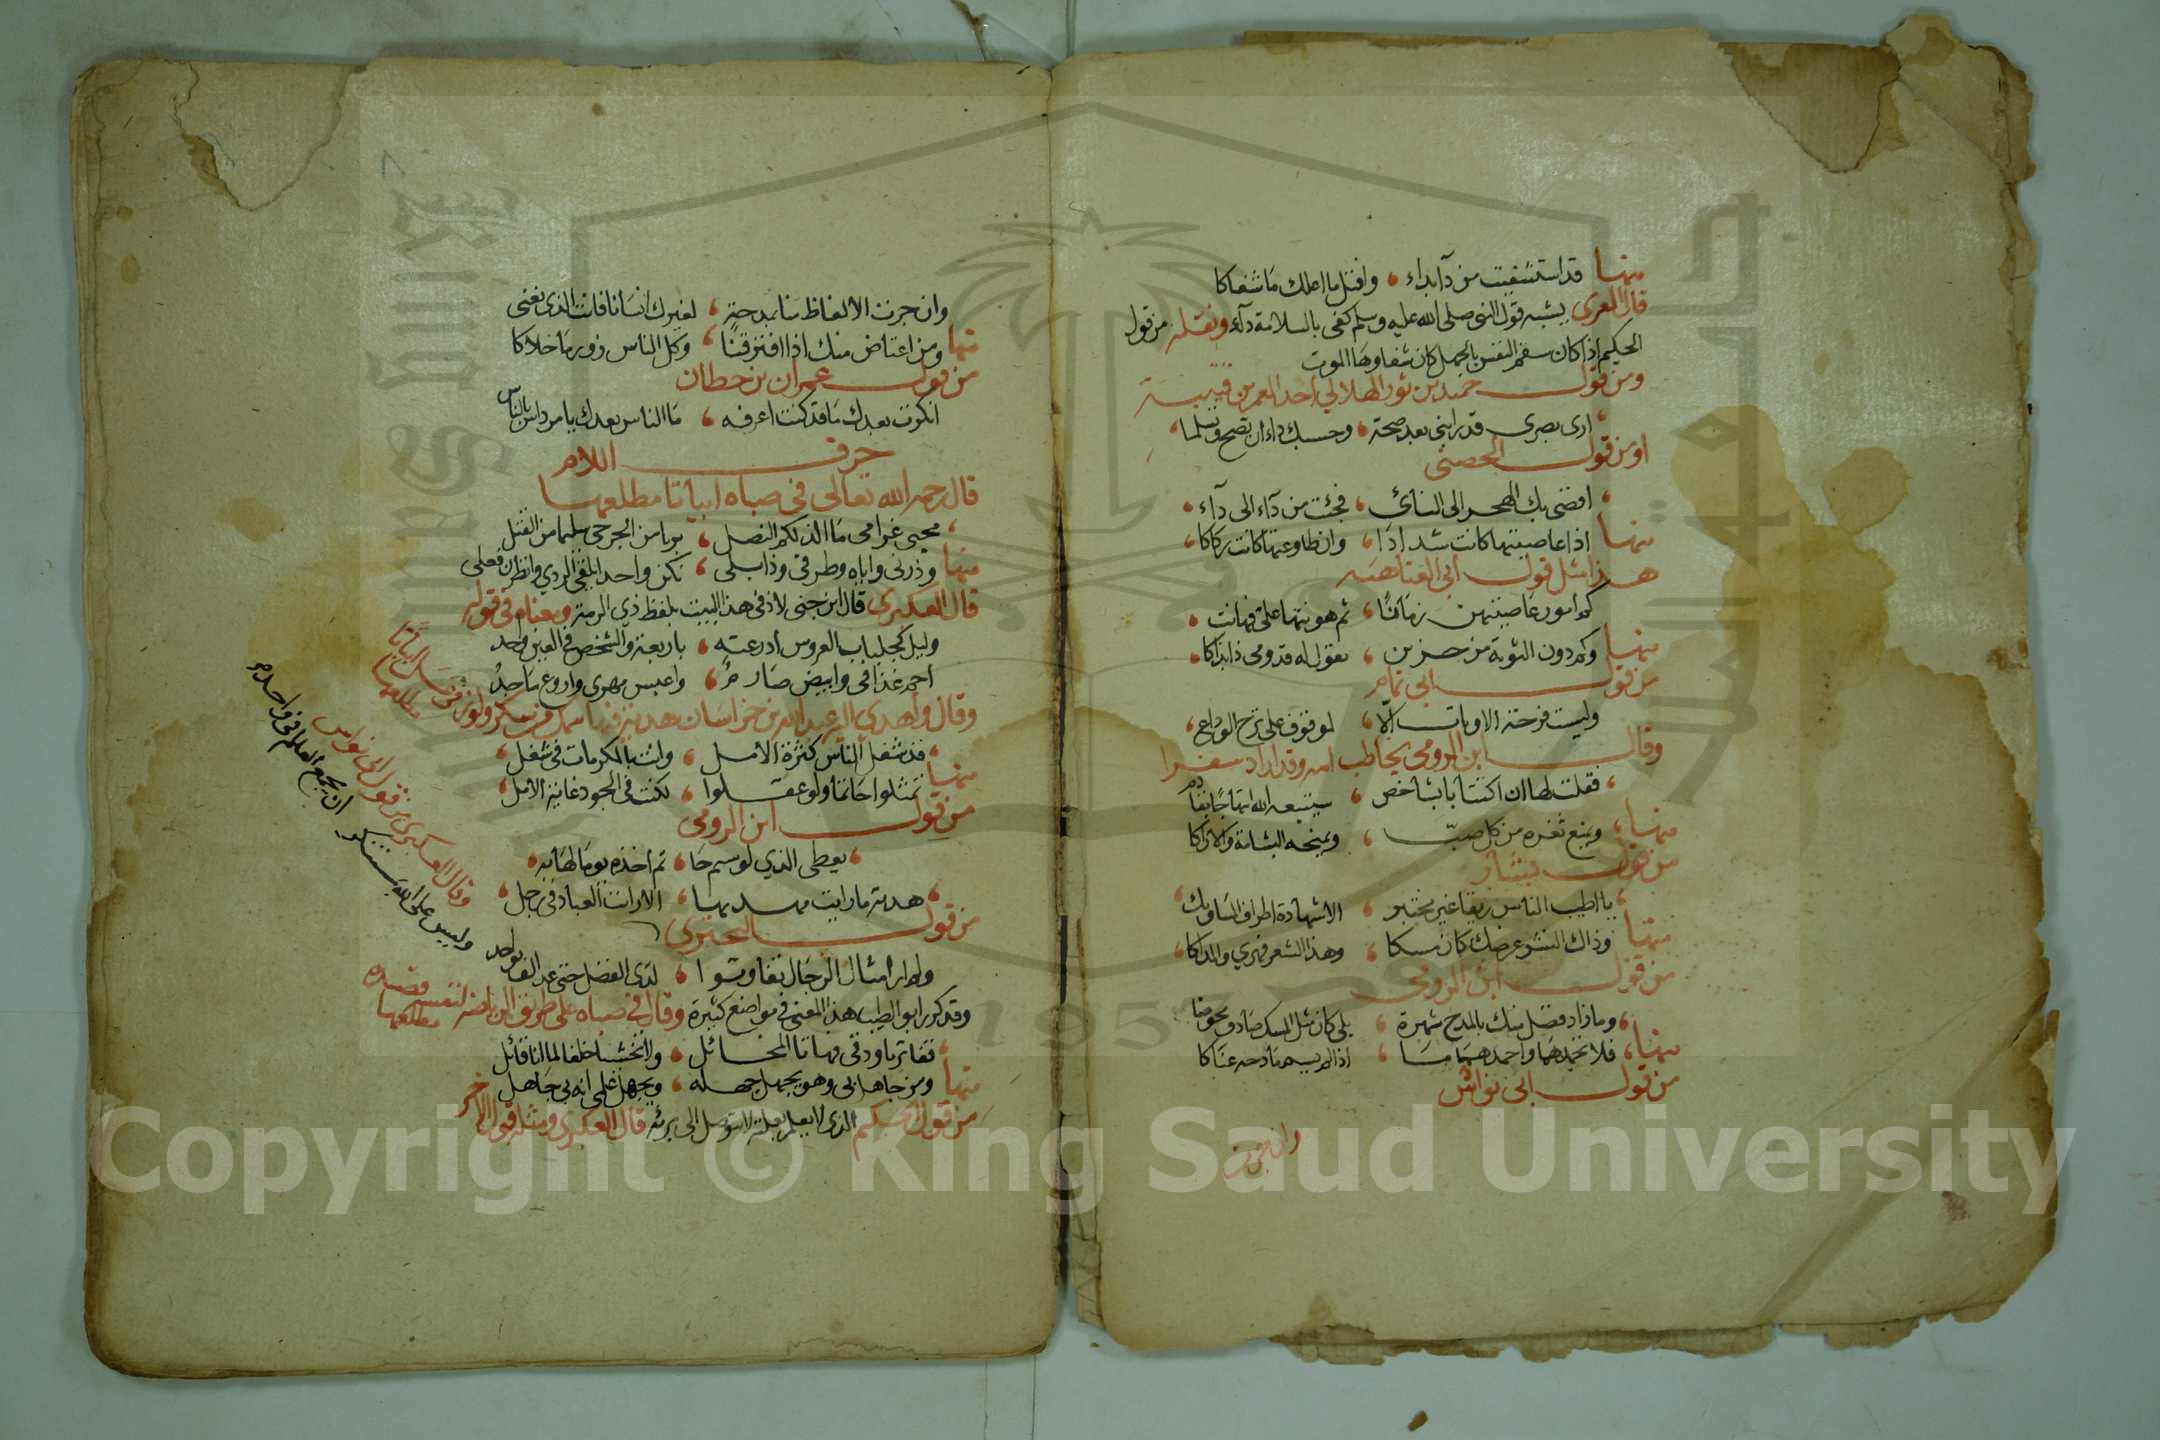 منها قد استشفيت من داء بداء وافتل ما اعلك ما شفاكا
قال المعري يشبه قول النبي صلى الله عليه وسلم كفى بالسلامة داء ونقله من قول
الحكيم اذا كان سقم النفس بالجهل كان شفاوها الموت
ومن قول حميد بن ثور الهلالي احد المعمرين قتيبة
ارى بصري قد رابني بعد صحة وحسبك داء ان تصح وتسلما
او من قول الحصني
افضى بك الهجر الى النأي فجئت من داء الى داء
منها اذا عاصيتها كانت شدادا وان طاوعتها كانت ركاكا
هذا مثل قول ابي العتاهية
كم امور عاصيتهن زمانا ثم هونتها علي فهانت
منها وكم دون الثوية من حزين يقول له قدومي ذا بذاكا
من قول ابي تمام
وليست فرحة الاوبات الا لموقوف على ترح الوداع
وقال ابن الرومي يخاطب امه وقد اراد سفرا
فقلت لها ان اكتئابا بشاخص سيتبعه الله ابتهاجا بقادم
منها ويمنع ثغره من كل صب ويمنحه البشامة والاراكا
من قول بشار
يا اطيب الناس ريقا غير مختبر الا شهادة اطراف المساويك
منها وذاك النشر عرضك كان مسكا وهذا الشعر فهري والمداكا
من قول ابن الرومي
وما زاد فضل منك بالمدح شهرة بلى كان مثل المسك صادف مخوضا
منها فلا تحمدهما واحمد هماما اذا لم يسم مادحه عناكا
من قول ابي نواس
وان جرت
وان جرت الالفاظ منا بمدحة لغيرك انسانا فانت الذي نعني
منها ومن اعتاض منك اذا افترقنا وكل الناس زور ما خلاكا
من قول عمران بن حطان
انكرت بعدك ما قد كنت اعرفه ما الناس بعدك يا مرداس بالناس
حرف اللام
قال رحمه الله تعالى في صباه ابياتا مطلعها
محبي غرامي ما لذلكم النصل بريا من الجرحى سليما من القتل
منها وذرني واياه وطرفي وذابلي نكن واحدا يلقى الردي وانظرن فعلي
قال العكبري قال ابن جني لاذ في هذا البيت بلفظ ذي الرمة ومعناه في قوله
وليل كجلباب العروس ادرعته باربعة والشخص في العين واحد
احم غدافي وابيض صارم واعيس مهري واروع ماجد
وقال واهدى اليه عبيد الله من خراسان هدية فيها سمك من سكر ولوز في عسل ابياتا مطلعها
قد شغل الناس كثرة الامل وانت بالمكرمات في شغل
منها تمثلوا حاتما ولو عقلوا لكنت في الجود غاية الامل
من قول ابن الرومي
يعطي الذي لو سيم حا تم اخذه يوما لهابه
هدية ما رايت مهديها الا رايت العباد في رجل
من قول البحتري
ولم ار امثال الرجال تفاوتوا لدى الفضل حتى عد الف بواحد
وقال العكبري من قول ابي نواس
وليس على الله بمستنكر ان يجمع العالم في واحد
وقد كرر ابو الطيب هذا المعنى في مواضع كثيرة وقال في صباه على طريق المراضة لنفسه قصيدة مطلعها
قفا تريا ودقي فهاتا المخائل ولا تخشيا خلفا لما انا قائل
منها ومن جاهل بي وهو يجهل جهله ويجهل علمي انه بي جاهل
من قول الحكيم الذي لا يعلم بعلته لا يتوصل الى برئه قال العكبري ومثله قول الاخر